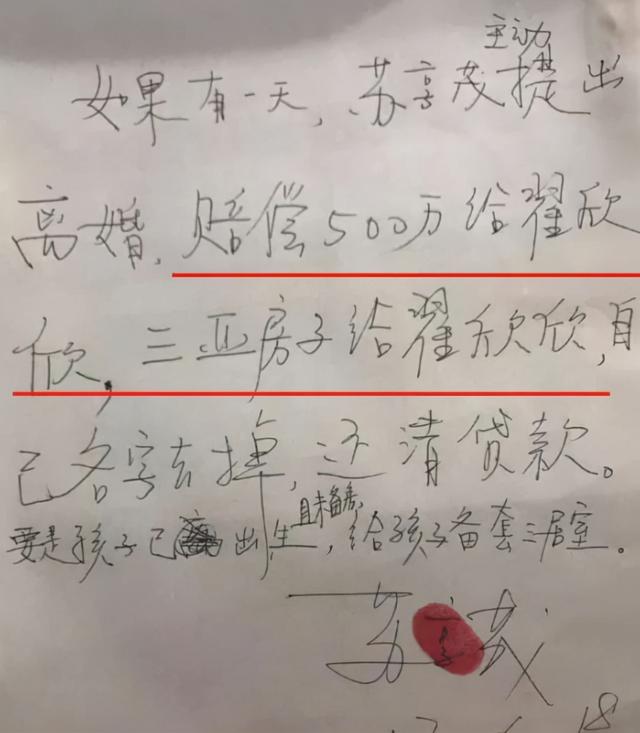 主动
如果有一天,苏享茂提出
离婚,赔偿500万给翟欣
欣,三亚房子给翟欣欣,自
己名字去掉,还清贷款。
且未备房,
要是孩子已出生,给孩子备套三居室。
苏享茂
18